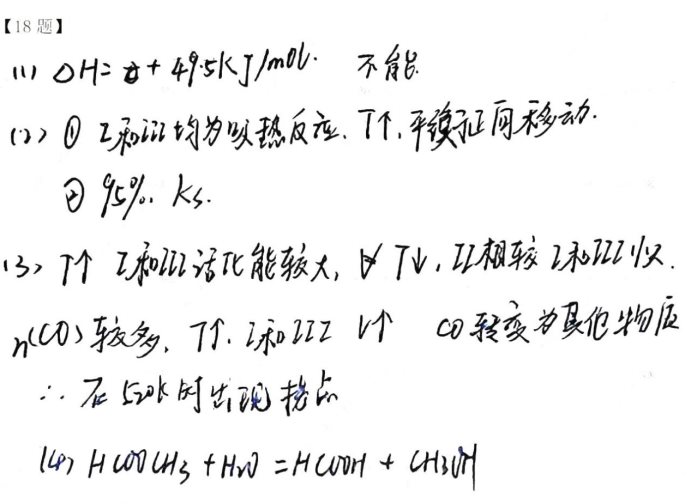 【18 题】
(1) ΔH= + 49.5KJ/mol. 不能.
(2) ① I和III均为吸热反应. T↑, 平衡正向移动.
② 95%. K3.
(3) T↑ I和III活化能较大, T↓, II相较I和III
n(CO) 较多, T↑. I和III V↑ CO转变为其他物质
∴ 在 520k 时出现拐点
(4) HCOOCH3 + H2O = HCOOH + CH3OH